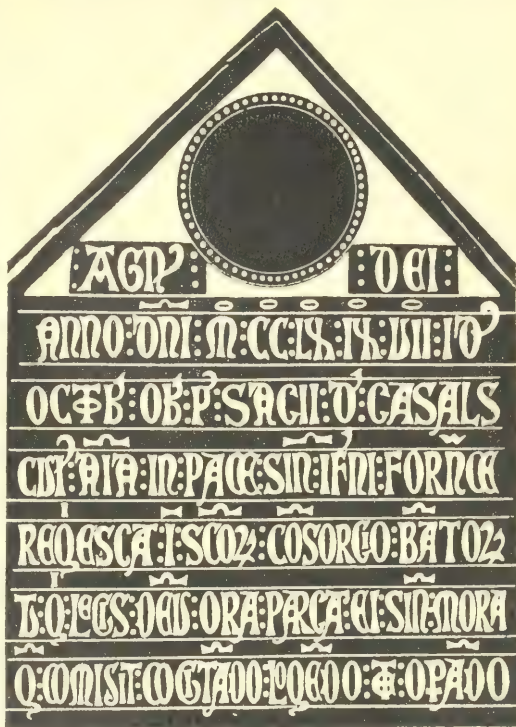 :AGN': :DEI:
ANNO:DNI:M:CC:LX:IX:VII:ID'
OCTB':OB':P':SACII:D':CASALS
CUI':AIA:IN:PACE:SIN:IFNI:FORNCE
REQESCA:I:SCOꝜ:COSORCIO:BATOꝜ
T:Q:LEGIS:DEU:ORA:PARCA:EI:SIN:MORA
Q:COMISIT:COGTADO:LOQEDO:T:OPADO